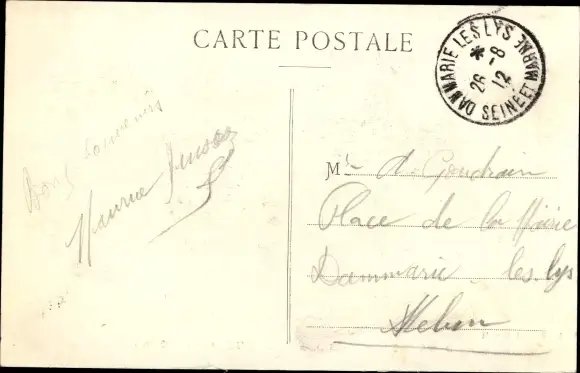 CARTE POSTALE
DAMMARIE LES LYS
* 26 -8 12
SEINE ET MARNE
Bons souvenirs
Maurice
Mr A. Goudrain
Place de la Mairie
Dammarie les lys
Melun